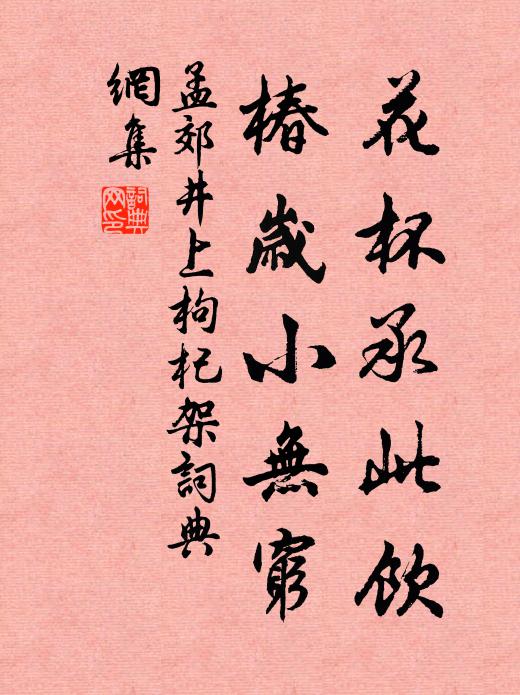 花杯承此飲
椿歲小無窮
孟郊井上枸杞架詞典
網集
詞典
网印